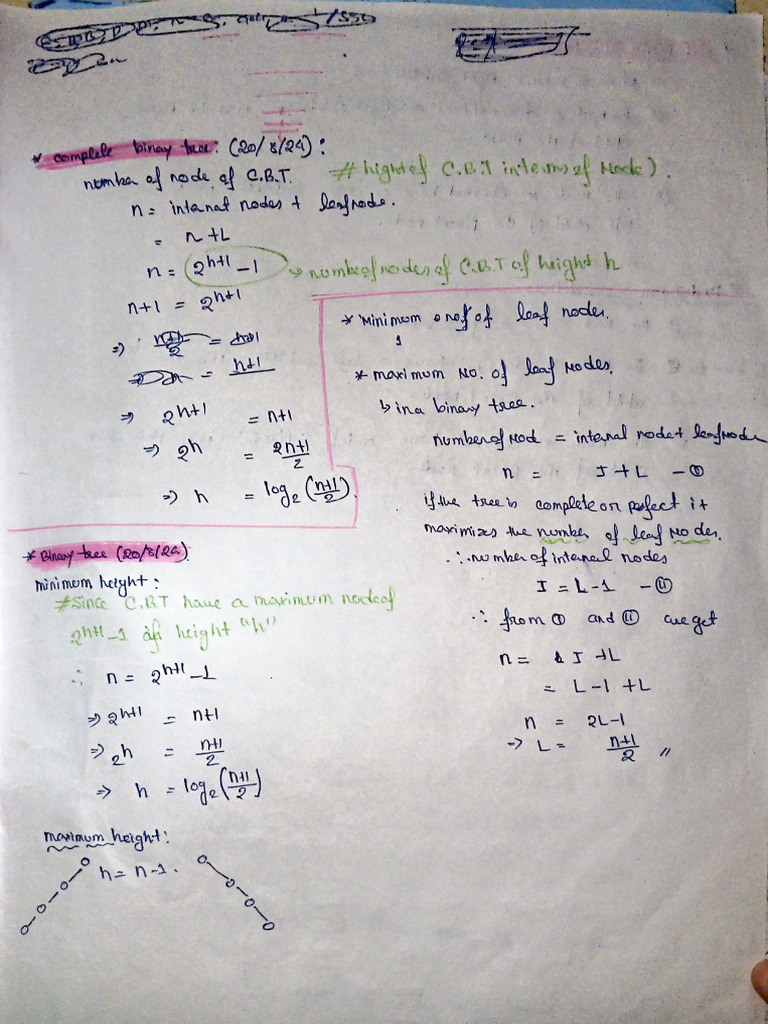 * complete binary tree: (20/8/24):
number of node of C.B.T.
# hight of C.B.T interms of Node).
n = internal nodes + leafnode.
= n + L
n = 2^{h+1} - 1 → number of nodes of C.B.T of height h
n+1 = 2^{h+1}
⇒ 2^{h+1} = n+1
⇒ 2^h = \frac{2n+1}{2}
⇒ h = log_2 (\frac{n+1}{2}).
* Minimum of leaf nodes.
1
* maximum No. of leaf Nodes.
↳ in a binary tree.
number of Nod = internal node + leaf Node
n = I + L - ①
if the tree is complete or perfect it
maximizes the number of leaf Nodes.
∴ number of internal nodes
I = L-1 - ⑪
∵ from ① and ⑪ we get
n = I + L
= L-1 + L
n = 2L-1
⇒ L = \frac{n+1}{2} //
* Binary tree (20/8/24)
minimum height:
# Since C.B.T have a maximum node of
2^{h+1} - 1 of height "h"
∴ n = 2^{h+1} - 1
⇒ 2^{h+1} = n+1
⇒ 2^h = \frac{n+1}{2}
⇒ h = log_2 (\frac{n+1}{2})
maximum height:
h = n-1.